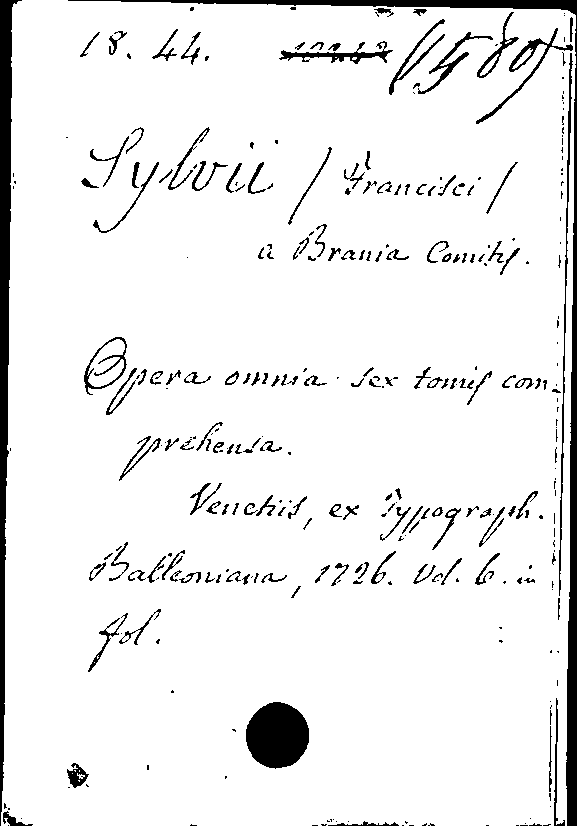 18. 44. (1580)
Sylvii / Francisci /
a Brania Comitis.
Opera omnia sex tomis com-
prehensa.
Venetiis, ex Typograph.
Balleoniana, 1726. Vol. 6. in
fol.